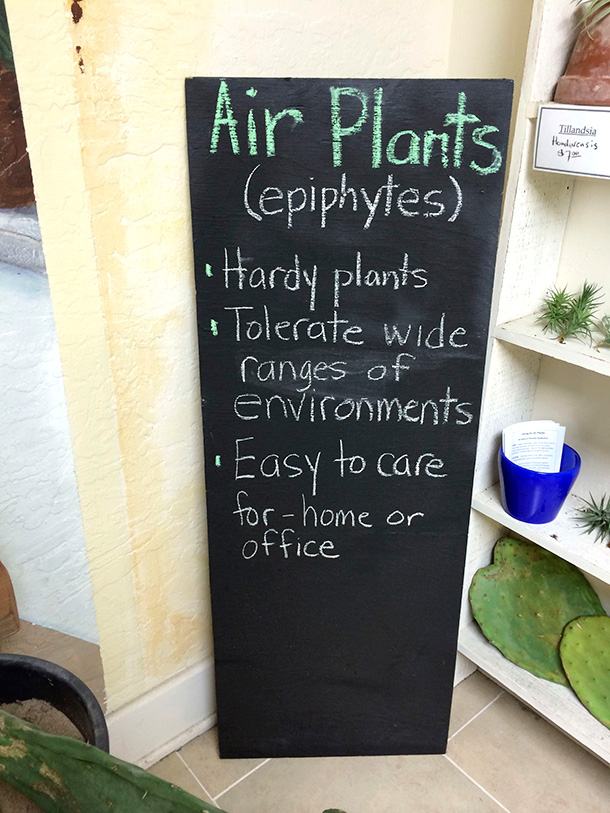 Air Plants
(epiphytes)
· Hardy plants
· Tolerate wide
ranges of
environments
· Easy to care
for - home or
office
Tillandsia
Hondurensis
$7.00